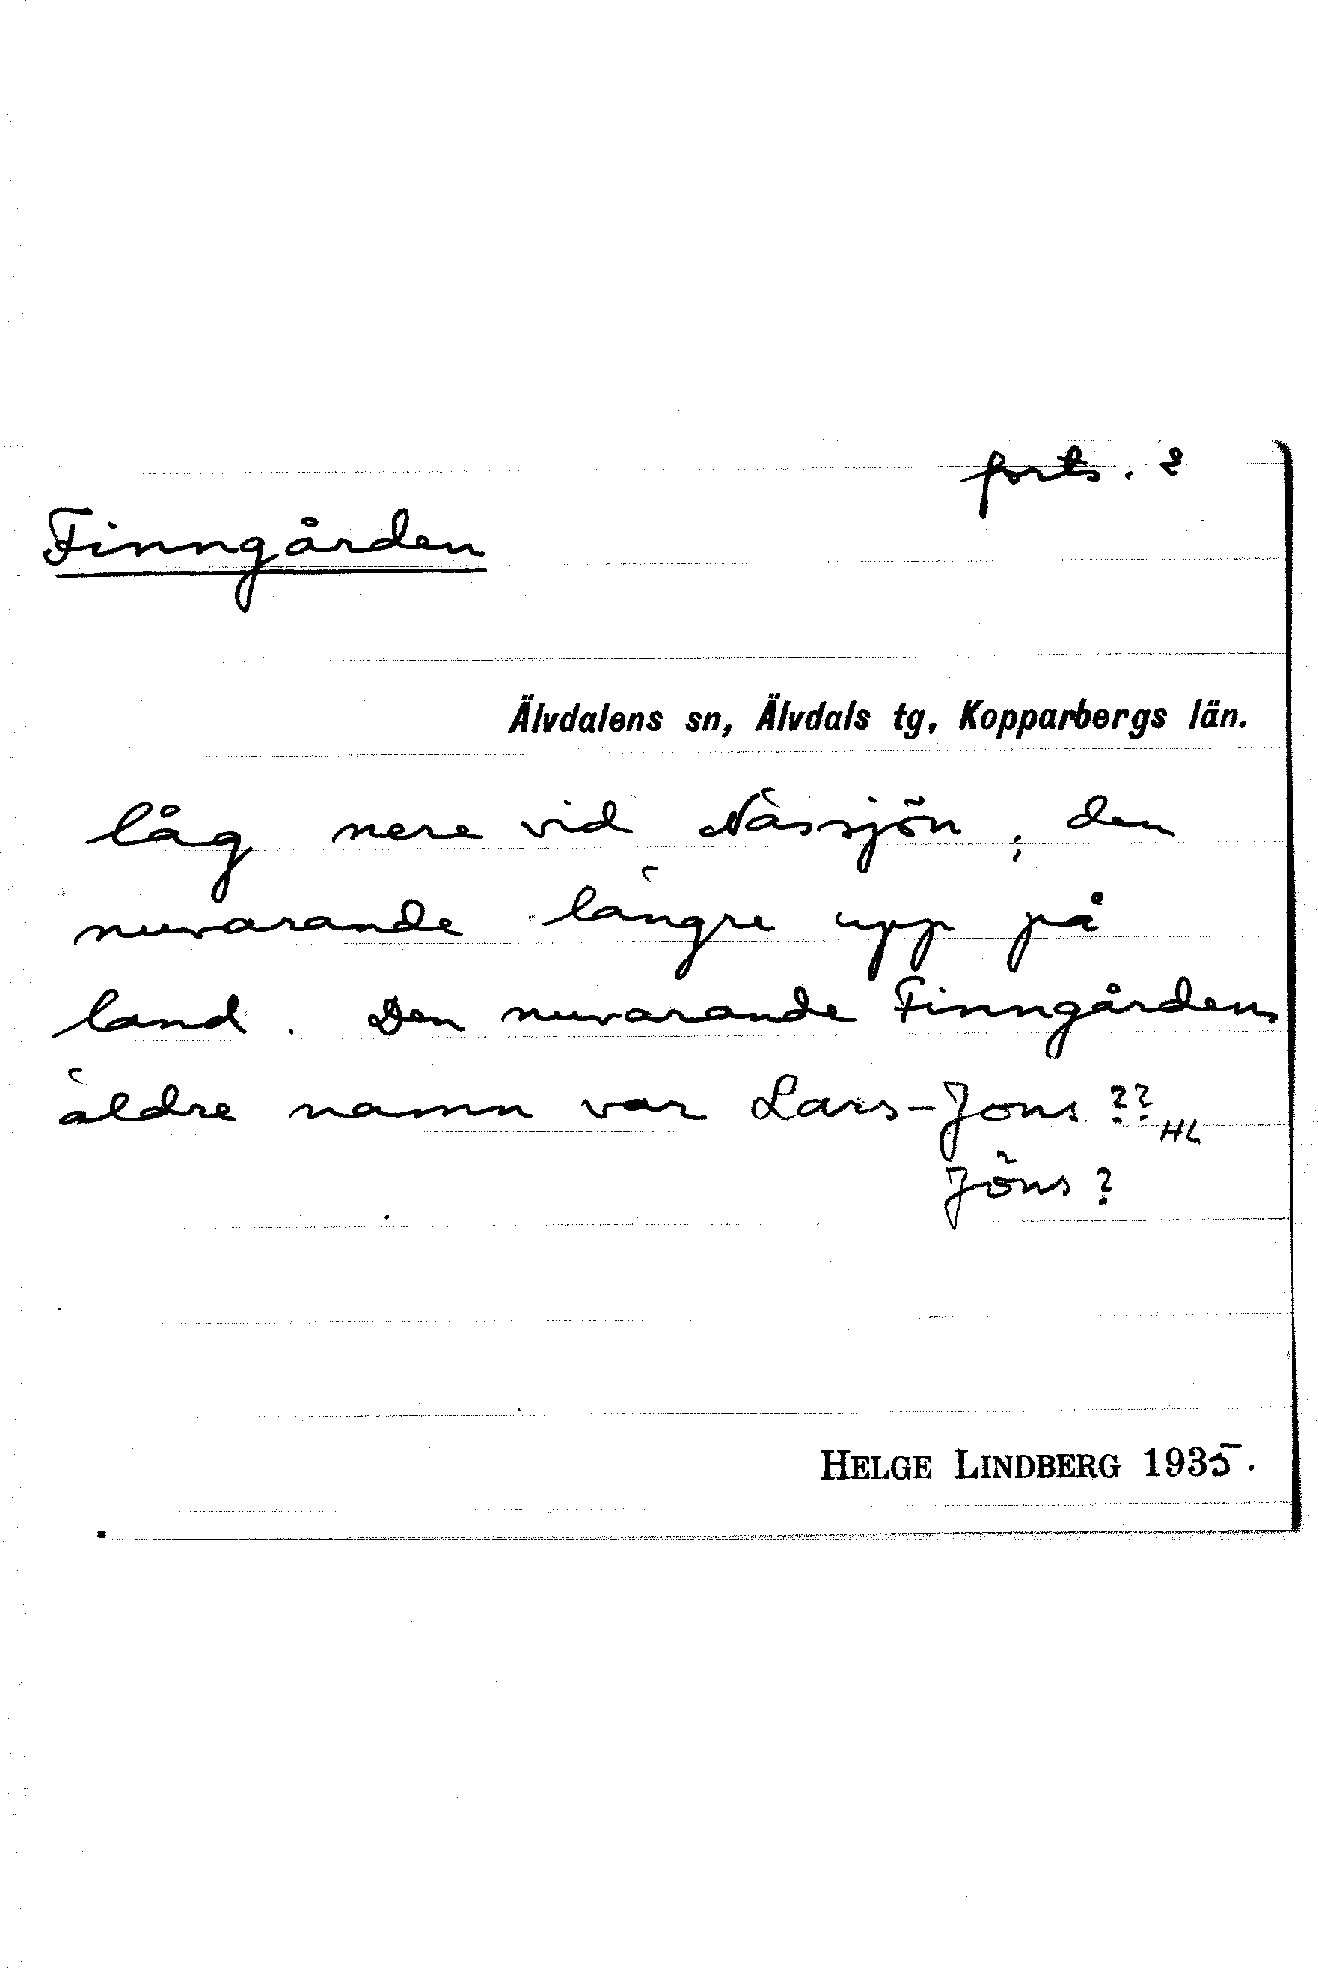 forts. 2
Finngården
Älvdalens sn, Älvdals tg, Kopparbergs län.
låg nere vid Nässjön; den
nuvarande längre upp på
land. Den nuvarande Finngårdens
äldre namn var Lars-Jons ??
HL
Jöns?
HELGE LINDBERG 1935.